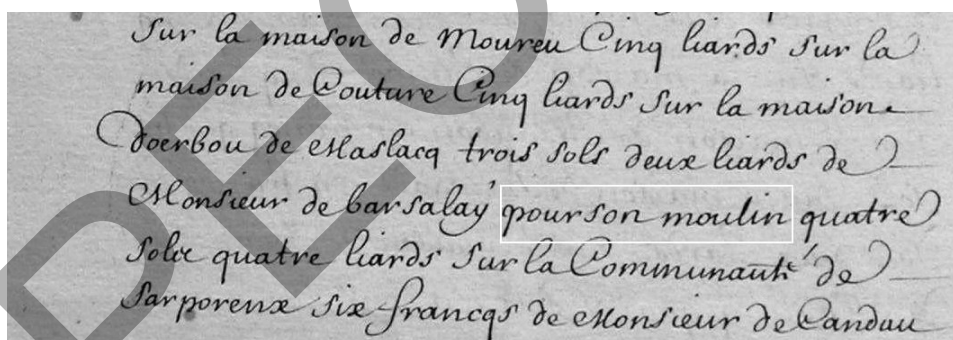 Sur la maison de Moureu Cinq liards Sur la
maison de Couture Cinq liards Sur la maison
doerbou de Maslacq trois sols deux liards de
Monsieur de barsalay pour son moulin quatre
solz quatre liards Sur la Communauté de
Sarporenx six francqs de Monsieur de Candau